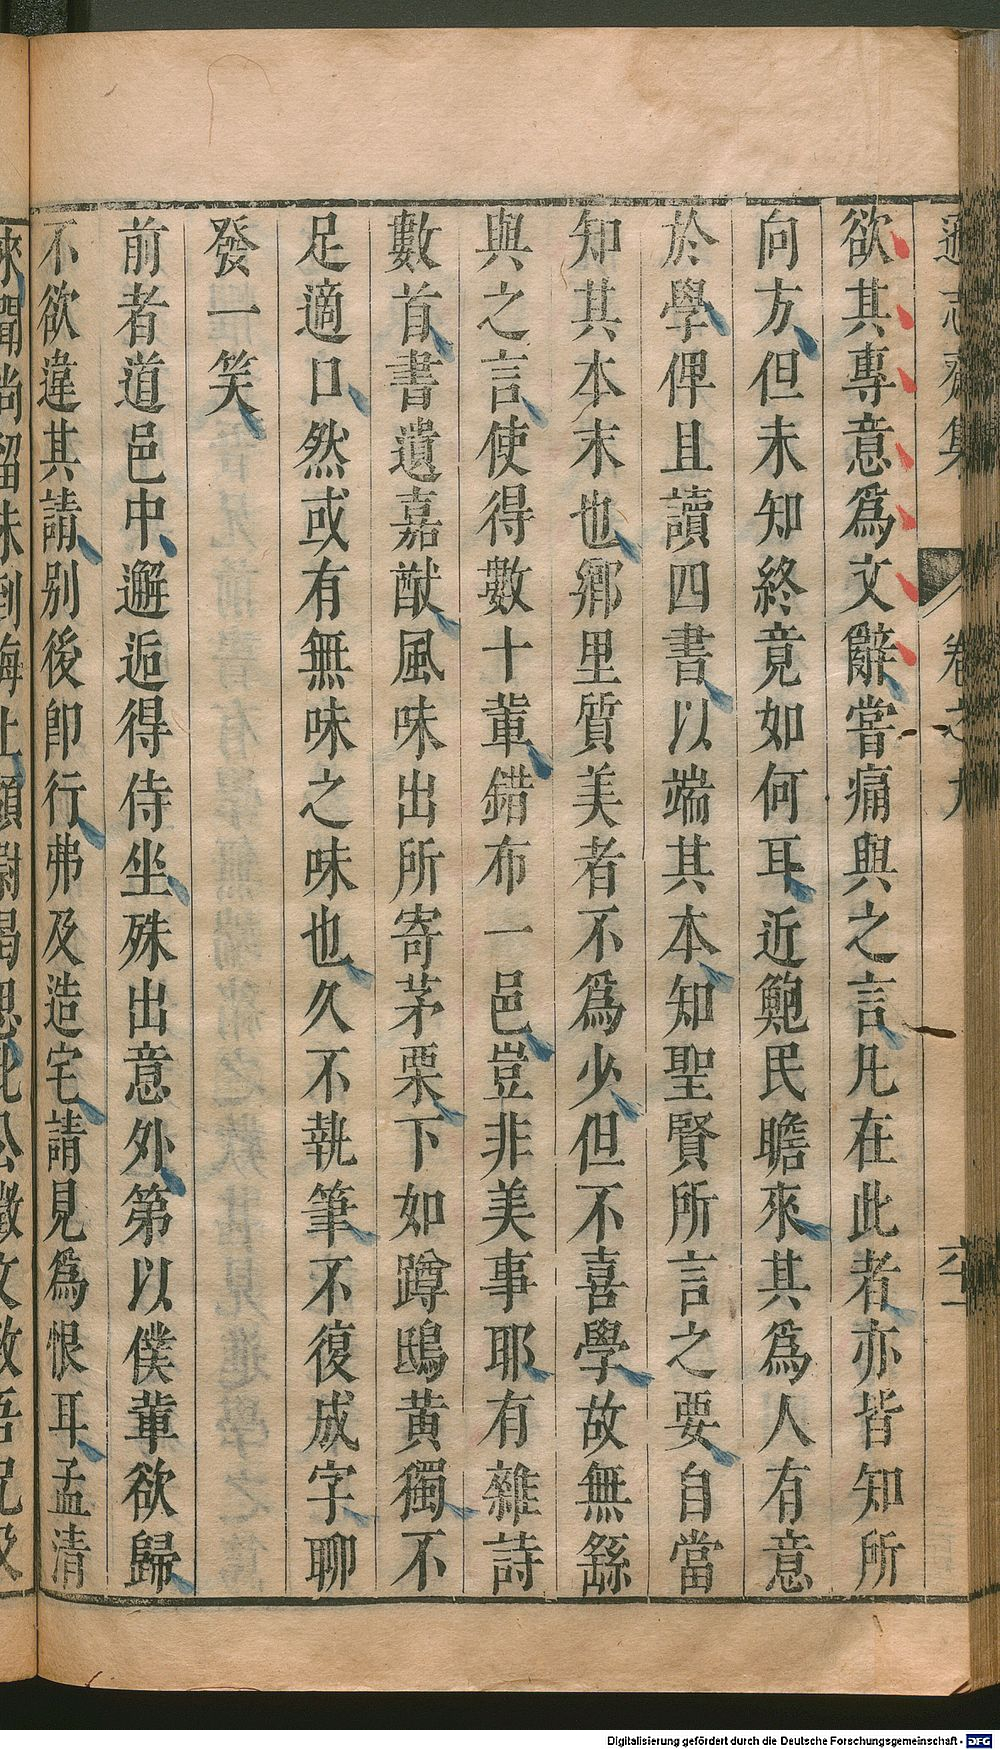 遜志齋集
卷之九
六一
欲其專意爲文辭嘗痛與之言凡在此者亦皆知所
向方但未知終竟如何耳近鮑民瞻來其爲人有意
於學俾且讀四書以端其本知聖賢所言之要自當
知其本末也鄉里質美者不爲少但不喜學故無繇
與之言使得數十輩錯布一邑豈非美事耶有雜詩
數首書遺嘉猷風味出所寄茅栗下如蹲鴟黃獨不
足適口然或有無味之味也久不執筆不復成字聊
發一笑
前者道邑中邂逅得侍坐殊出意外第以僕輩欲歸
不欲違其請別後卽行弗及造宅請見爲恨耳孟清
Digitalisierung gefördert durch die Deutsche Forschungsgemeinschaft - DFG